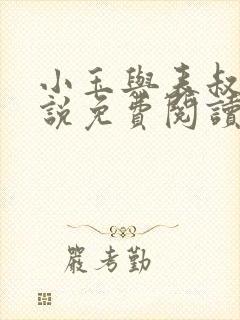 小玉與表叔
說免費閱讀
嚴考勤